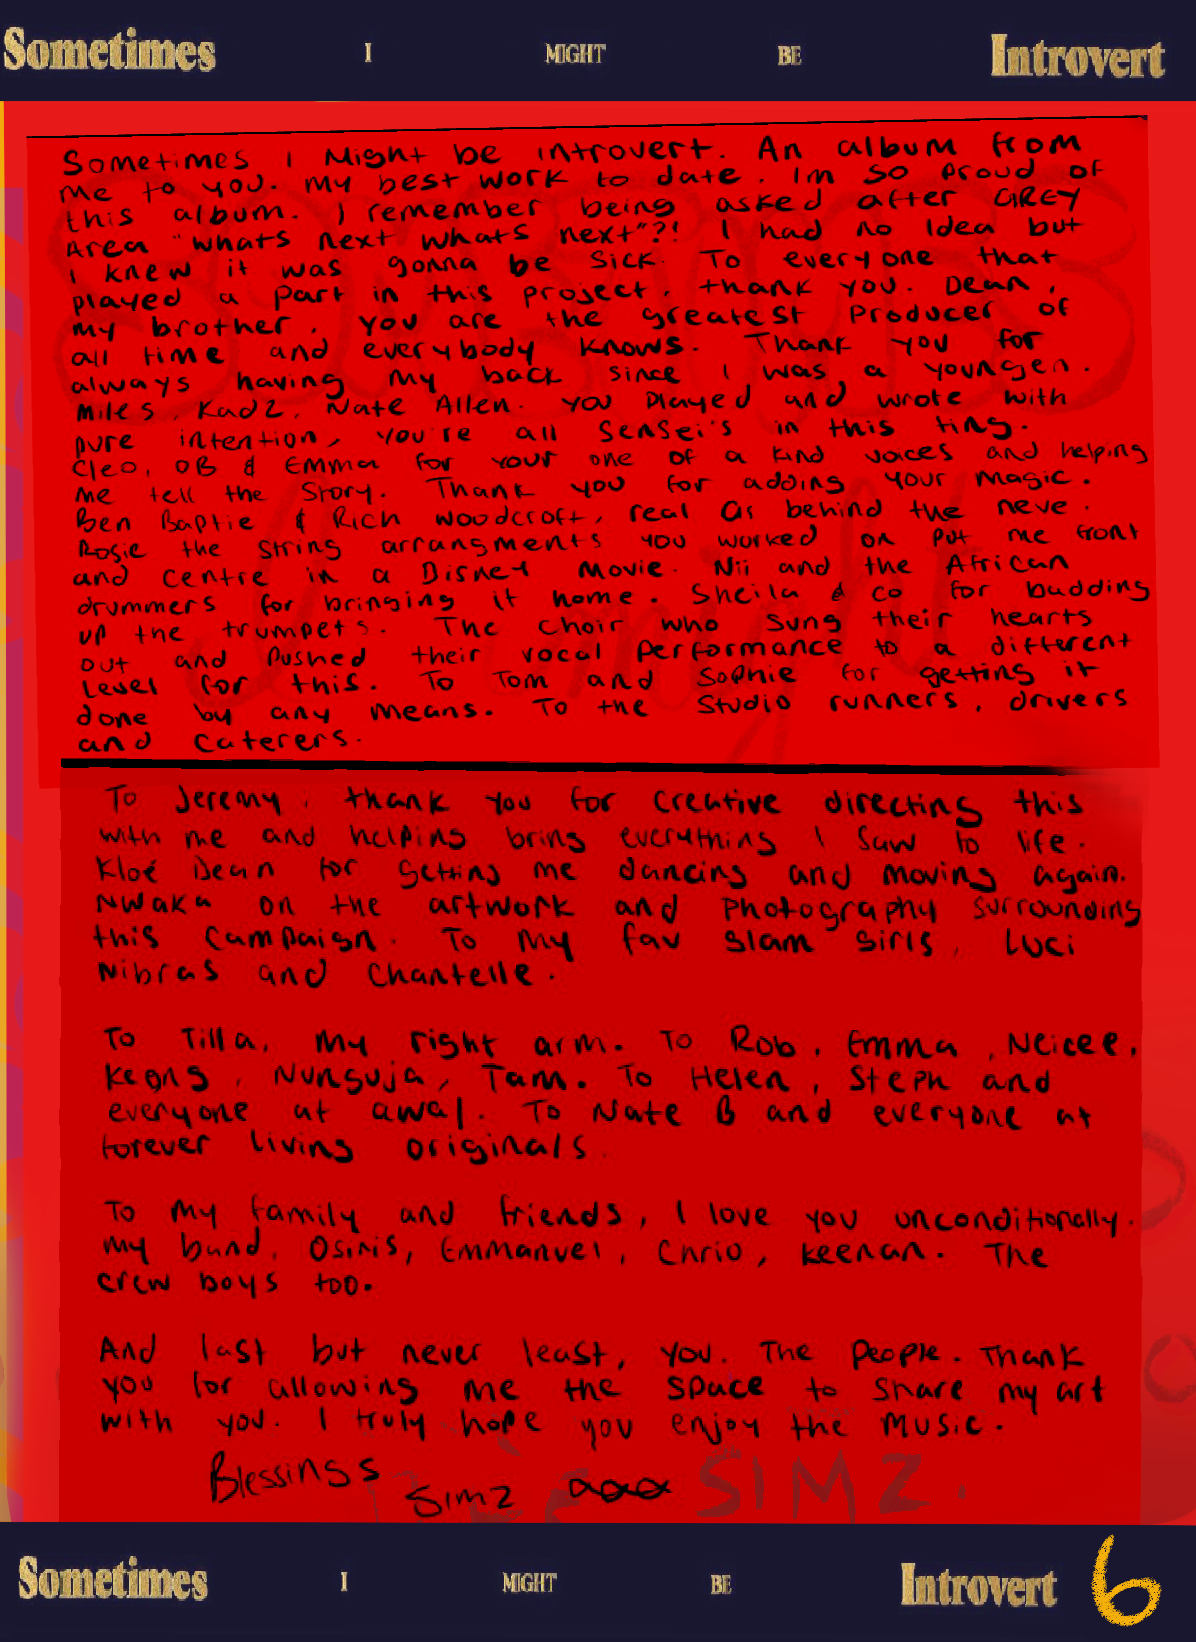 Sometimes I MIGHT BE Introvert
Sometimes I Might be introvert. An album from
me to you. My best work to date. Im so proud of
this album. I remember being asked after GREY
Area "whats next whats next"?! I had no idea but
I knew it was gonna be sick. To everyone that
played a part in this project, thank you. Dean,
my brother. You are the greatest producer of
all time and everybody knows. Thank you for
always having my back since I was a youngen.
Miles, Kadz, Nate Allen. You played and wrote with
pure intention, you're all sensei's in this ting.
Cleo, OB & Emma for your one of a kind voices and helping
me tell the story. Thank you for adding your magic.
Ben Baptie & Rich Woodcroft, real Gs behind the neve.
Rosie the string arrangments you worked on put me front
and centre in a Disney Movie. Nii and the African
drummers for bringing it home. Sheila & co for budding
up the trumpets. The choir who sung their hearts
out and pushed their vocal performance to a different
level for this. To Tom and Sophie for getting it
done by any means. To the studio runners, drivers
and caterers.
To Jeremy, thank you for creative directing this
with me and helping bring everything I saw to life.
Kloé Dean for getting me dancing and moving again.
Nwaka on the artwork and photography surrounding
this campaign. To my fav glam girls, Luci
Nibras and Chantelle.
To Tilla, my right arm. To Rob, Emma, Neicee,
Keons, Nunguja, Tam. To Helen, Steph and
everyone at awal. To Nate B and everyone at
forever living originals.
To my family and friends, I love you unconditionally.
my band, Osiris, Emmanuel, Chrio, Keenan. The
crew boys too.
And last but never least, you. The people. Thank
you for allowing me the space to share my art
with you. I truly hope you enjoy the music.
Blessings
Simz
SIMZ.
Sometimes I MIGHT BE Introvert 6